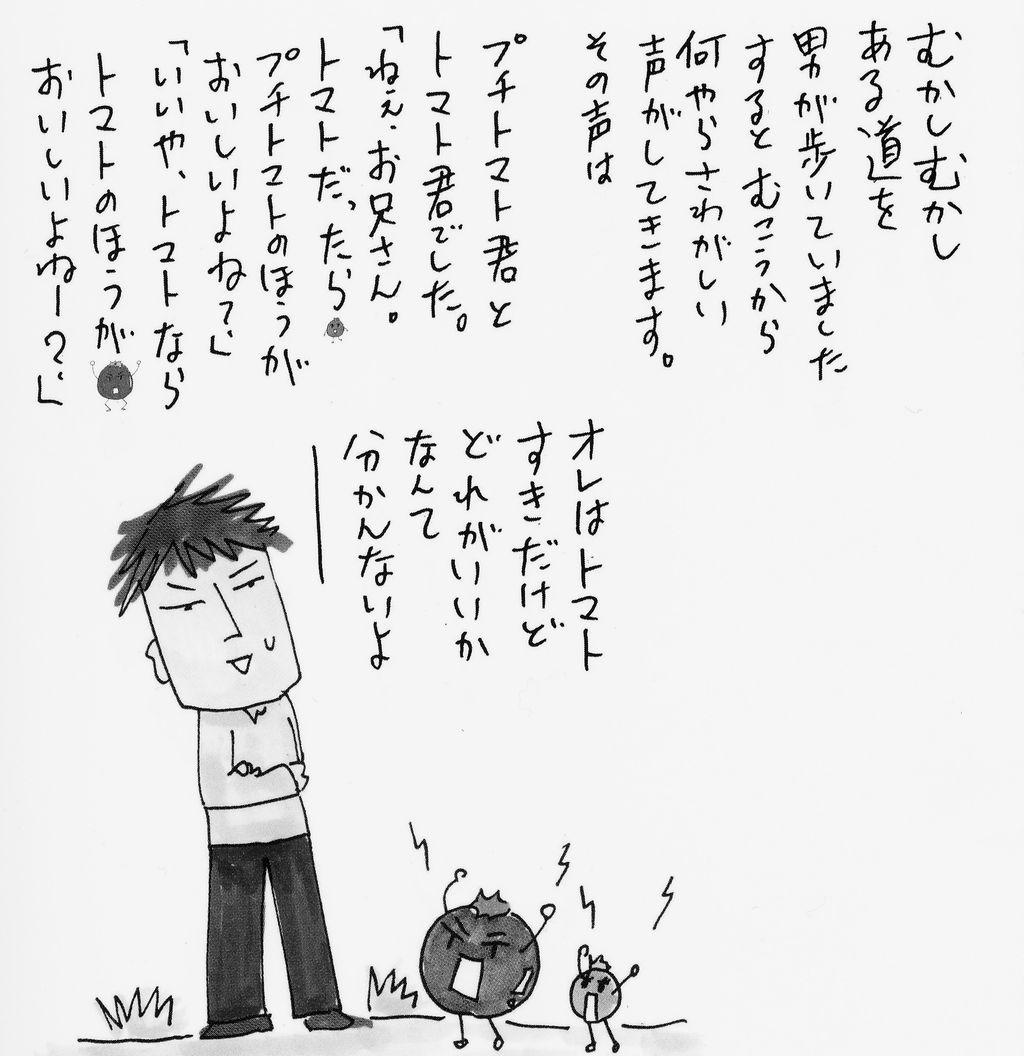 むかしむかし
ある道を
男が歩いていました
するとむこうから
何やらさわがしい
声がしてきます。
その声は
プチトマト君と
トマト君でした。
「ねぇ、お兄さん。
トマトだったら
プチトマトのほうが
おいしいよね?」
「いいや、トマトなら
トマトのほうが
おいしいよねー?」
オレはトマト
すきだけど
どれがいいか
なんて
分かんないよ